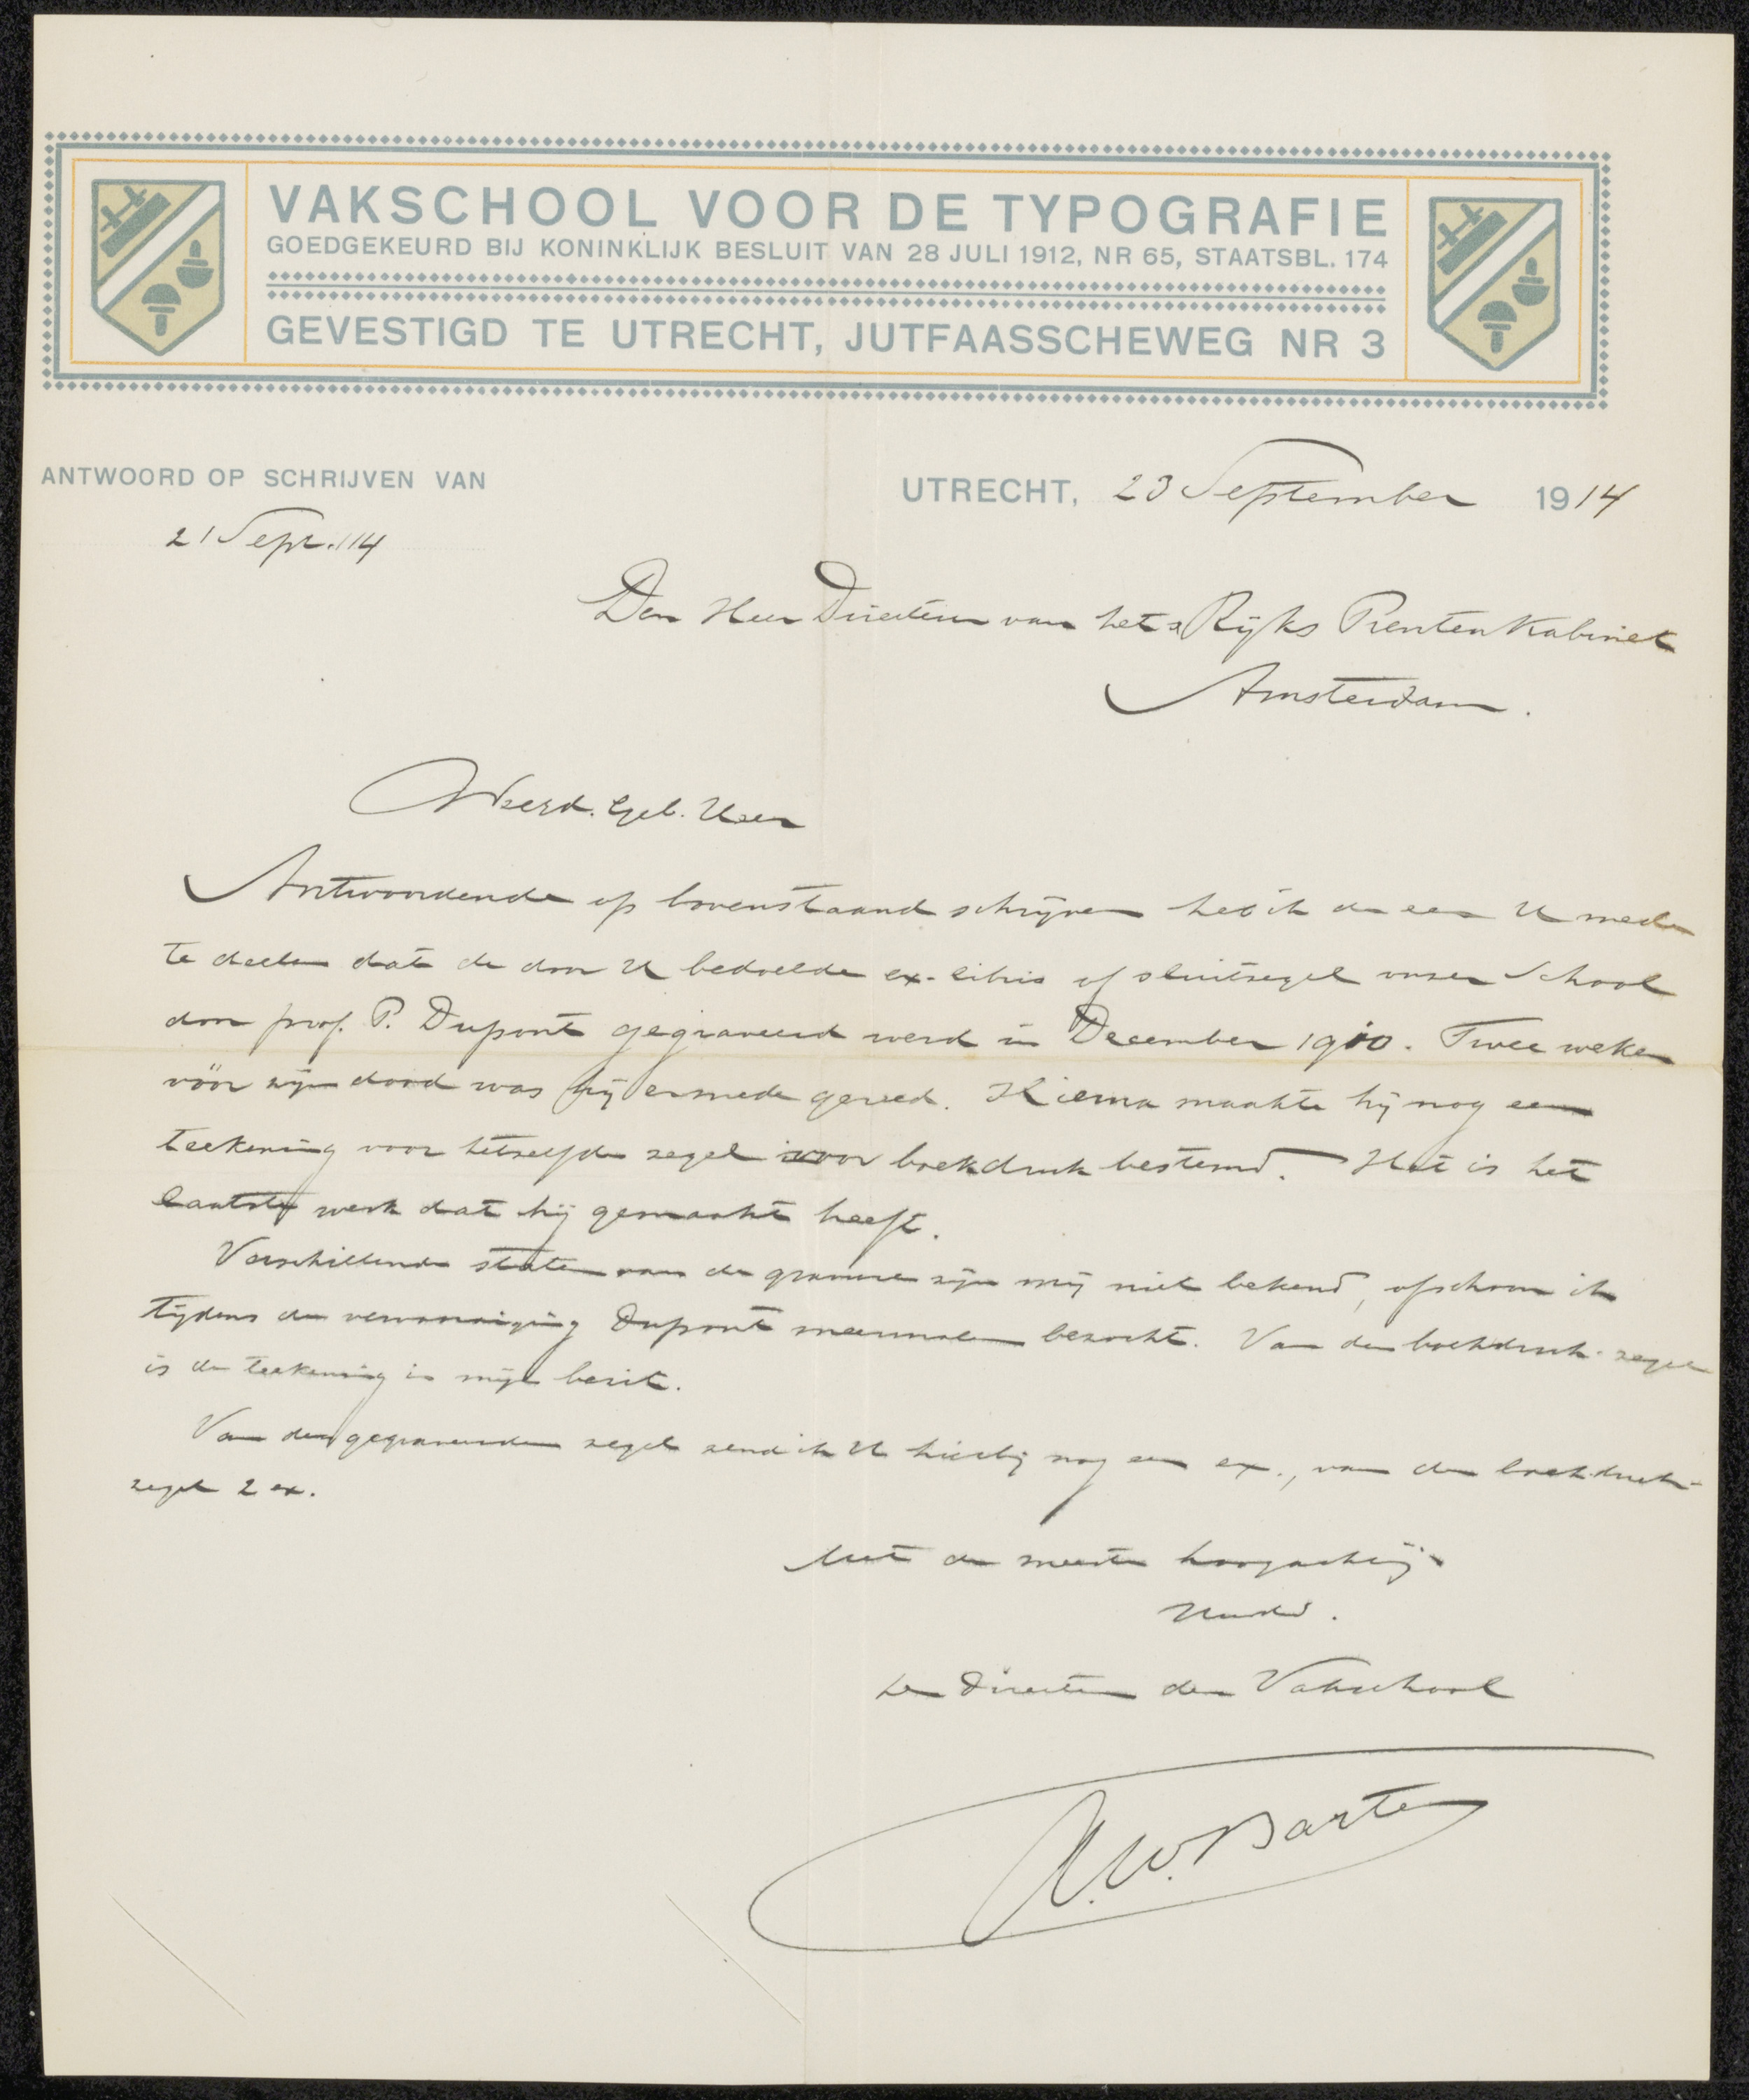 VAKSCHOOL VOOR DE TYPOGRAFIE
GOEDGEKEURD BIJ KONINKLIJK BESLUIT VAN 28 JULI 1912, NR 65, STAATSBL. 174
GEVESTIGD TE UTRECHT, JUTFAASSCHEWEG NR 3
ANTWOORD OP SCHRIJVEN VAN
21 Sept. 14
UTRECHT, 23 September 1914
Den Heer Directeur van het Rijks Prenten Kabinet
Amsterdam.
Weerd. Geb. Heer
Antwoordende op bovenstaand schrijven heb ik de eer U mede
te deelen dat de door U bedoelde ex-libris of sluitzegel onzer School
door prof. P. Dupont gegraveerd werd in December 1910. Twee weken
vóór zijn dood was hij ermede gereed. Hierna maakte hij nog een
teekening voor hetzelfde zegel voor boekdruk bestemd. Het is het
laatste werk dat hij gemaakt heeft.
Verschillende staten van de gravure zijn mij niet bekend, ofschoon ik
tijdens de vervaardiging Dupont meermalen bezocht. Van den boekdruk-zegel
is de teekening in mijn bezit.
Van den gegraveerden zegel zend ik U hierbij nog een ex., van den boekdruk-
zegel 2 ex.
Met de meeste hoogachting
De Directeur der Vakschool
W. Barten